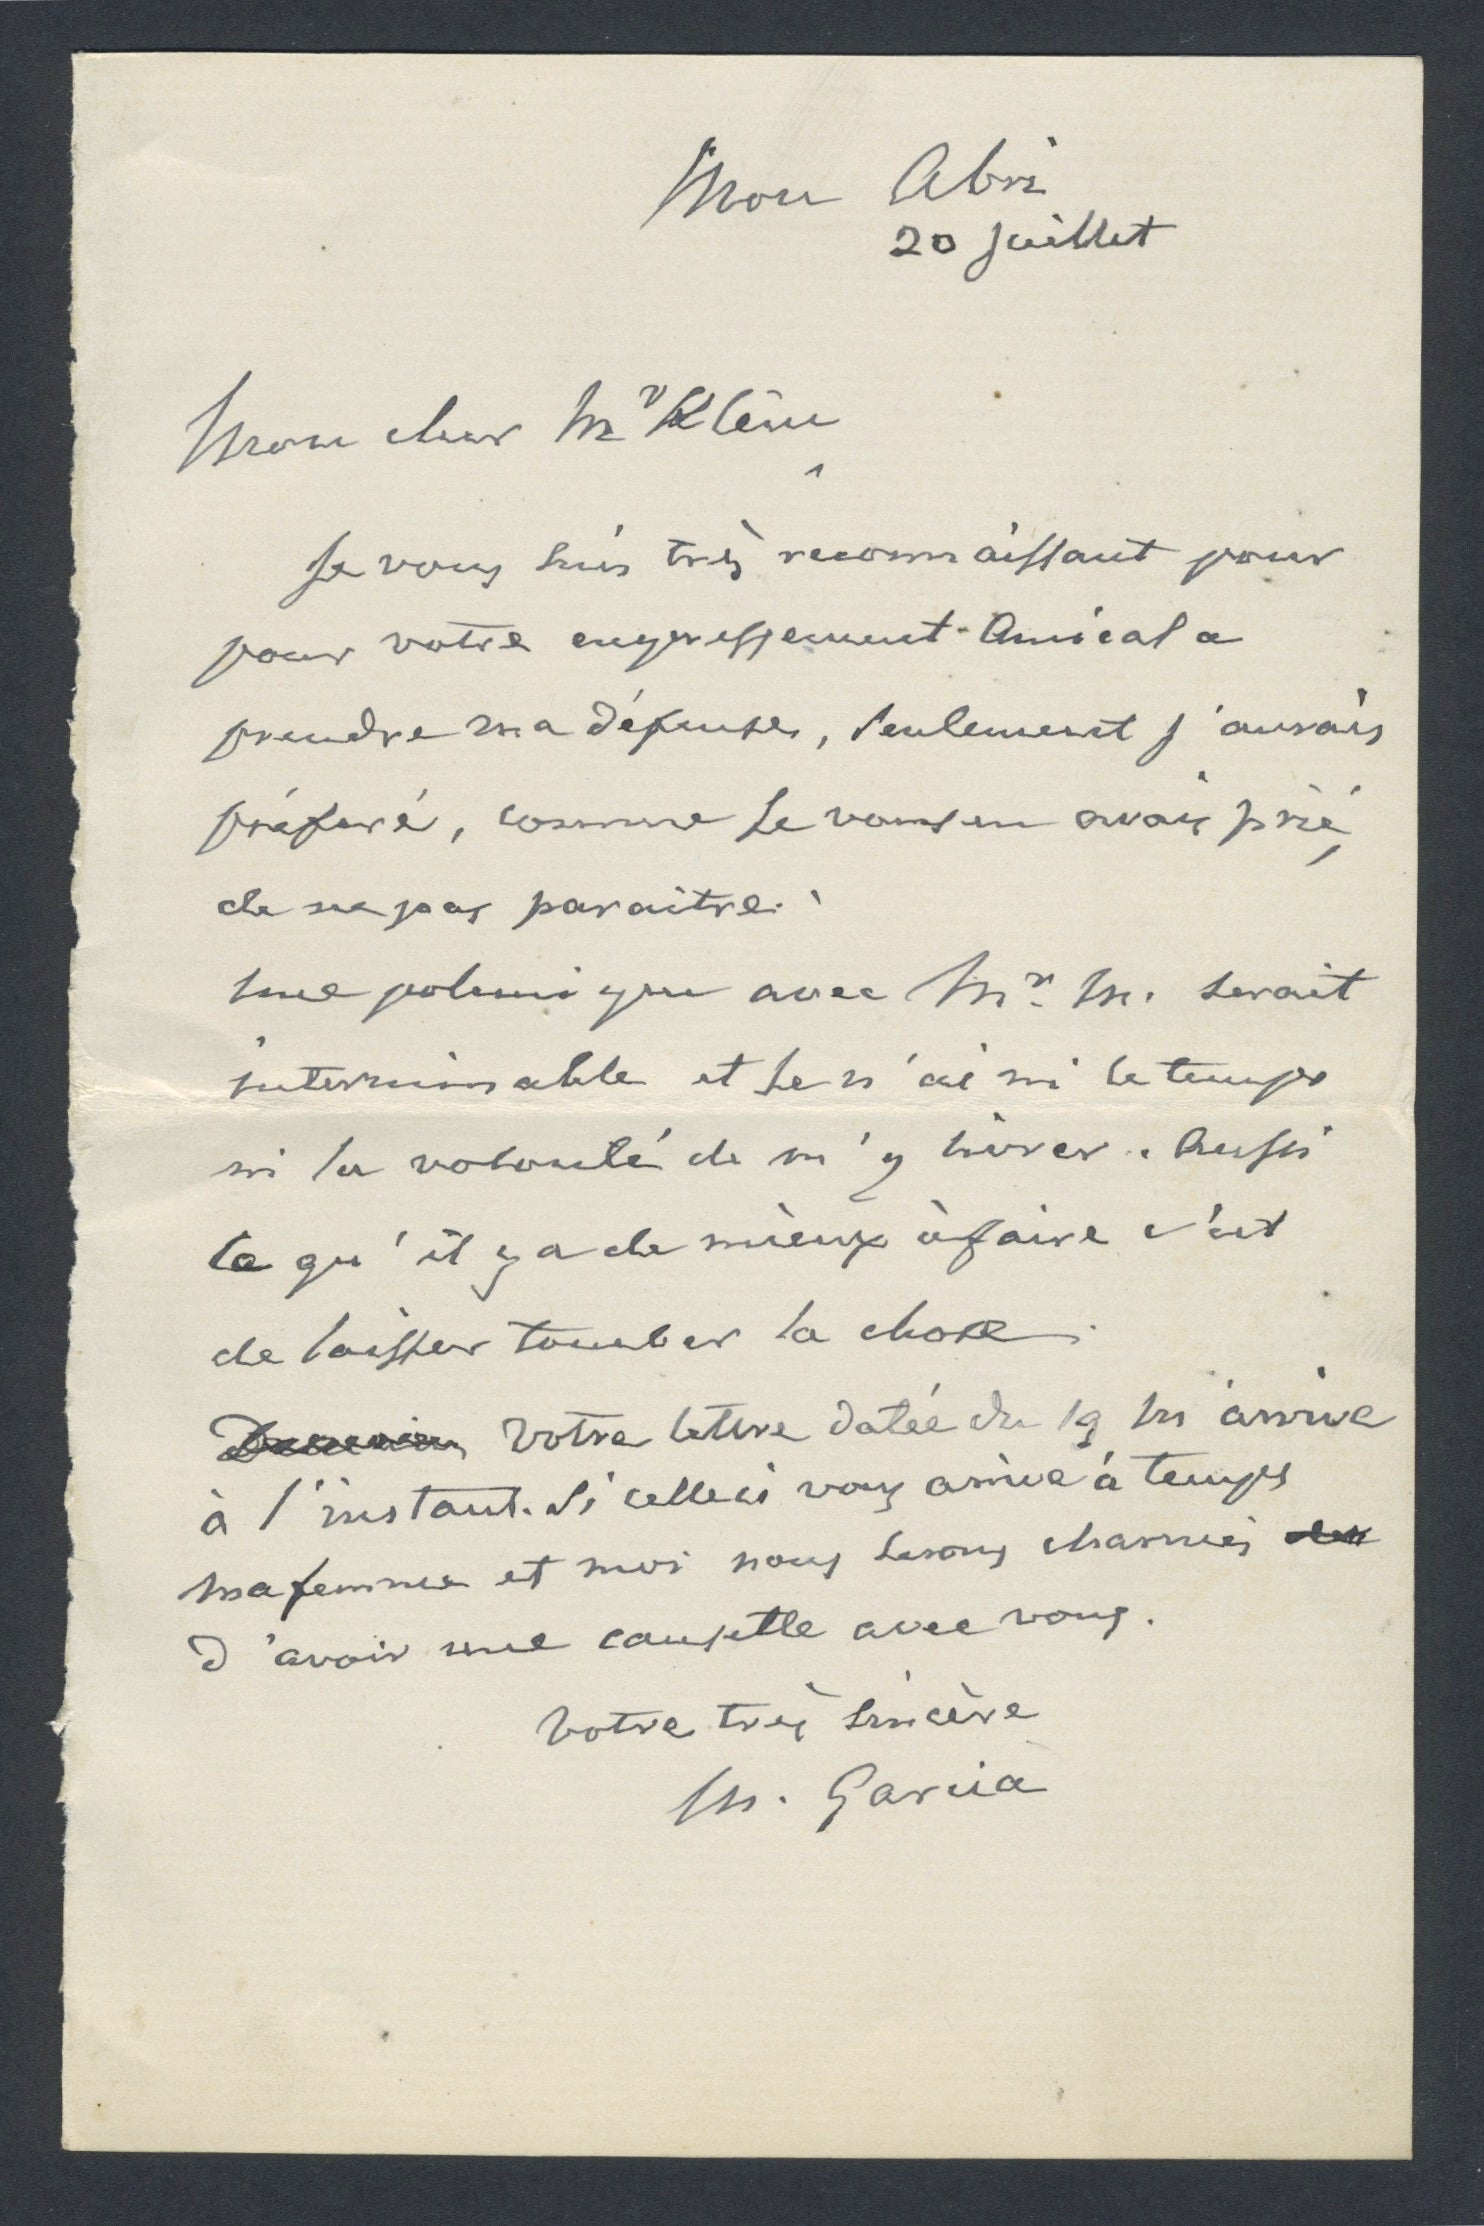 Mon Abri
20 juillet
Mon cher Mr Klein
Je vous suis très reconnaissant pour
pour votre empressement amical a
prendre ma défense, seulement j'aurais
préféré, comme je vous en avais prié,
de ne pas paraitre.
Une polemique avec Mr. M. serait
interminable et je n'ai ni le temps
ni la volonté de m'y livrer. Aussi
ce qu'il y a de mieux à faire c'est
de laisser tomber la chose.
Votre lettre datée du 19 m'arrive
à l'instant. Si celle ci vous arrive à temps
ma femme et moi nous serons charmés
d'avoir une causette avec vous.
Votre très sincère
M. Garcia